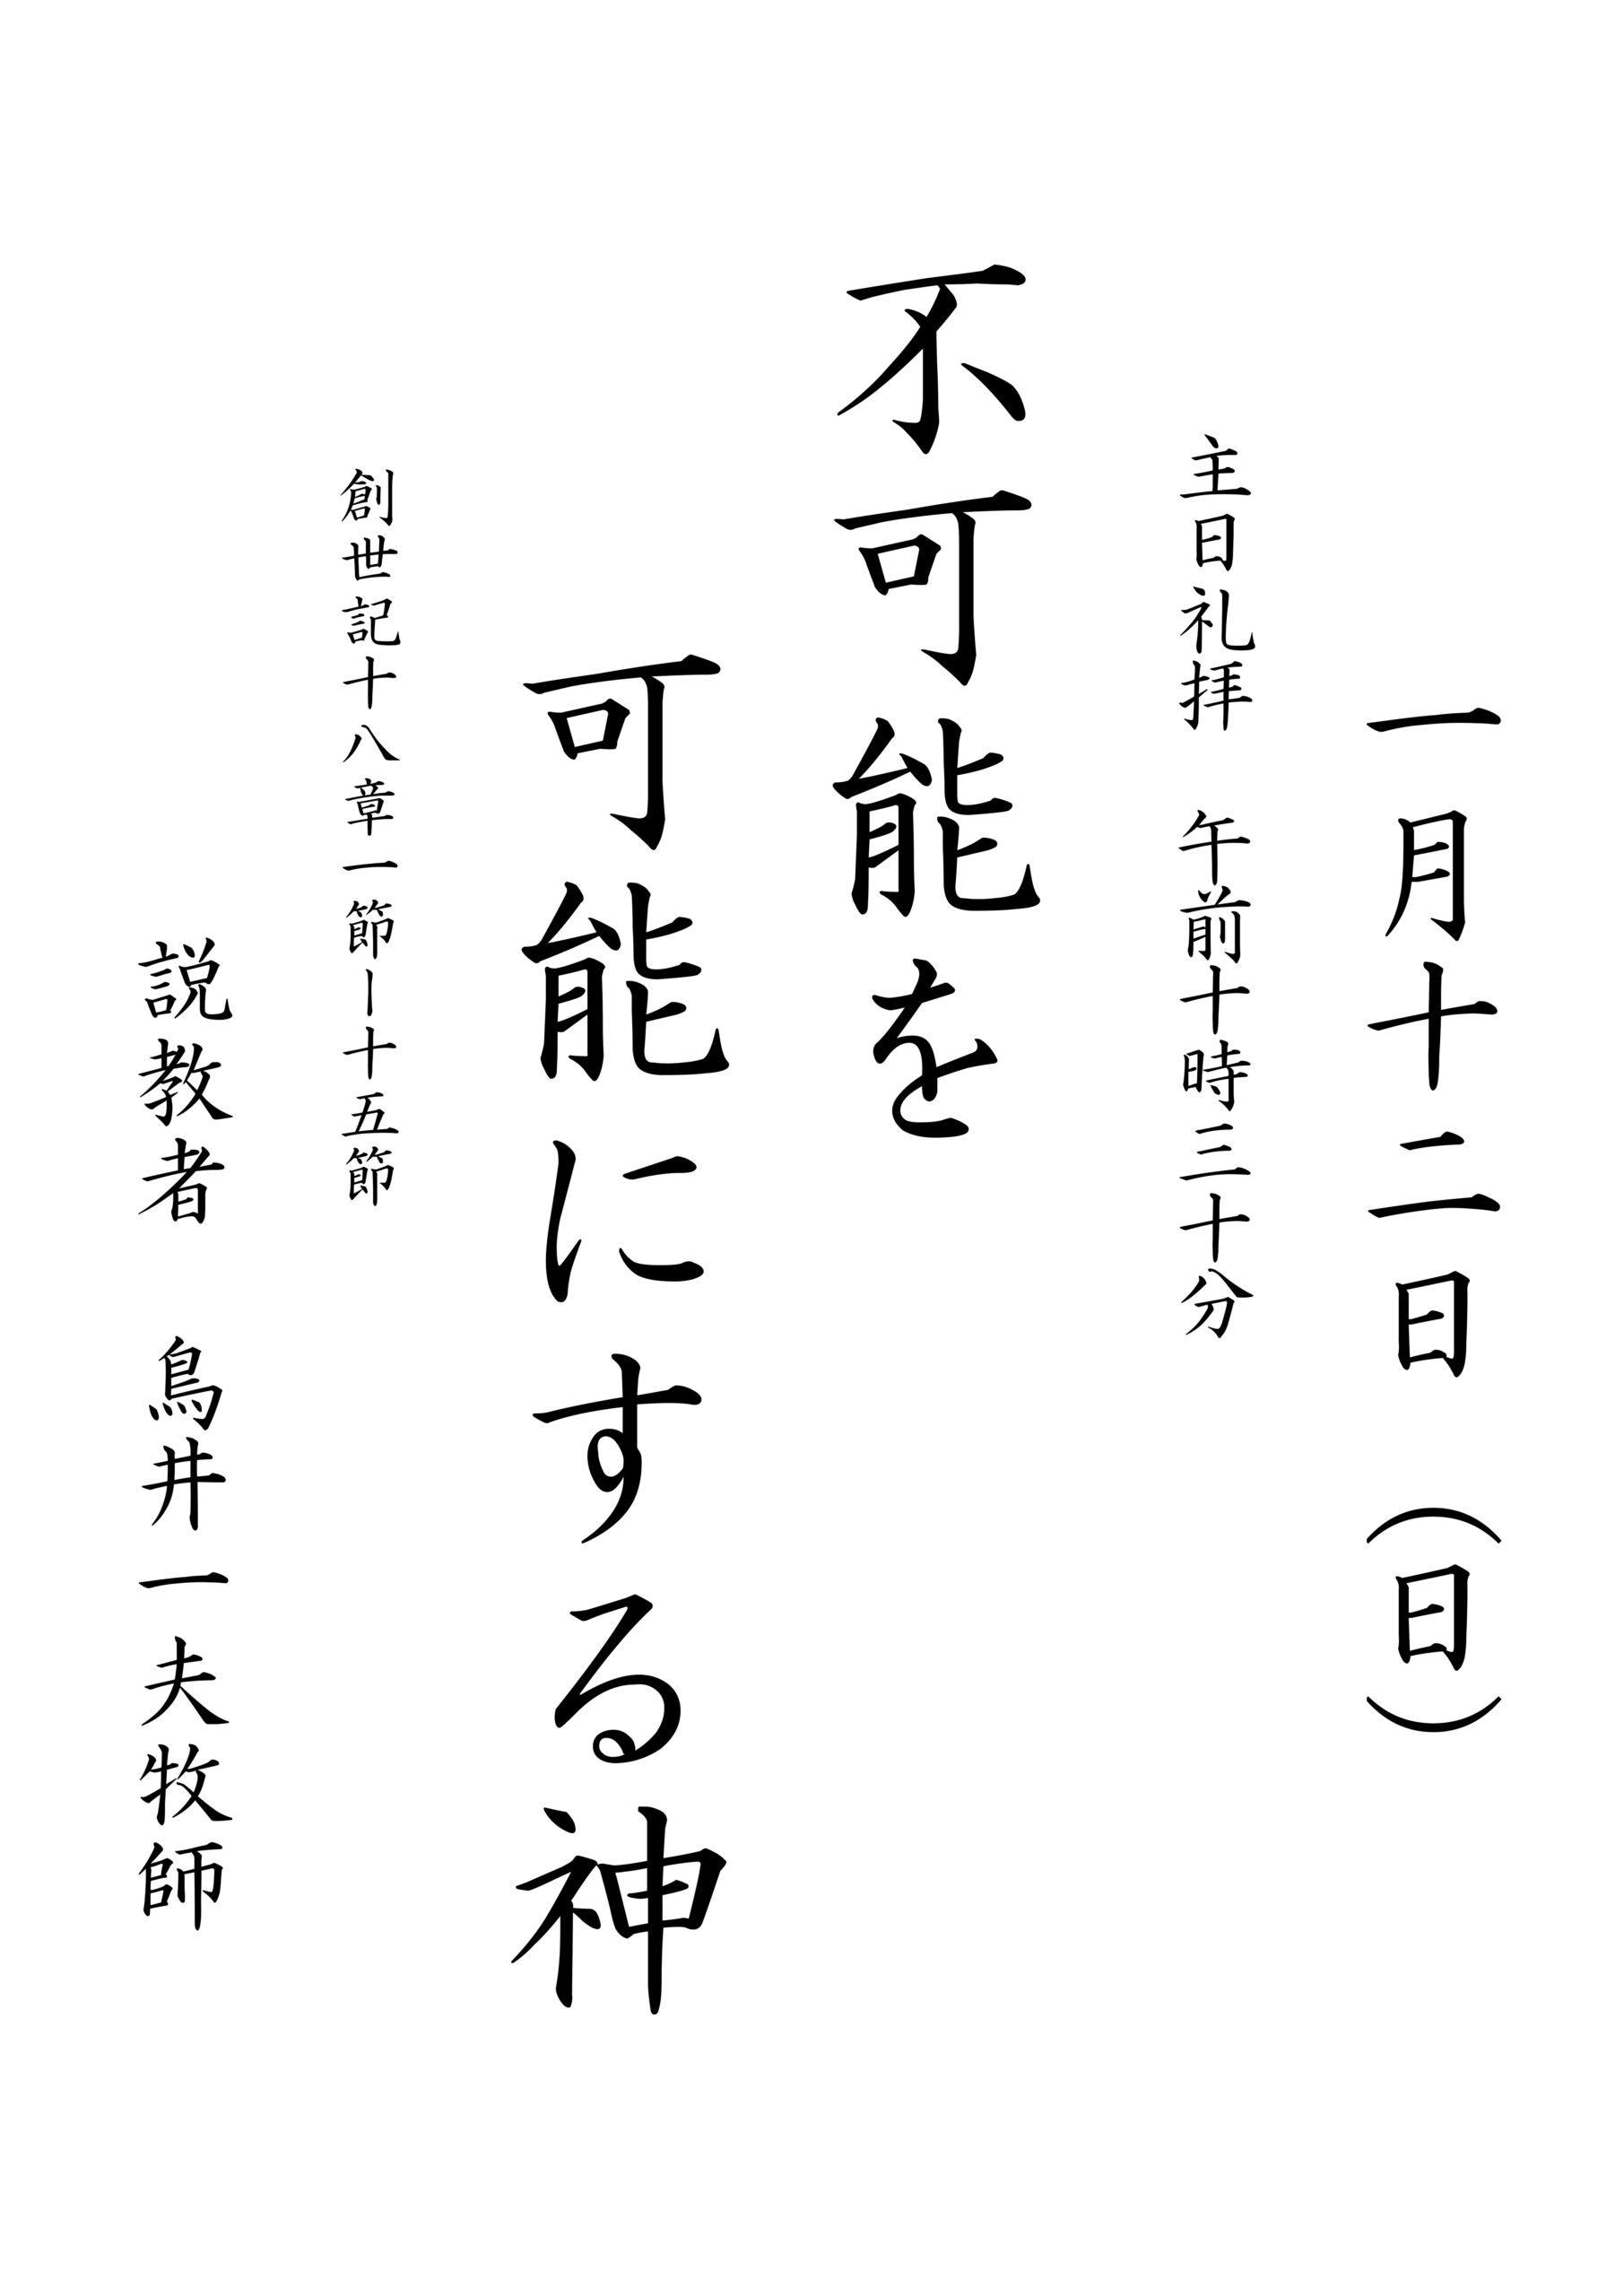 一月十二日 （日）
主日礼拝 午前十時三十分
不可能を
可能にする神
創世記十八章一節ー十五節
説教者 鳥井一夫牧師